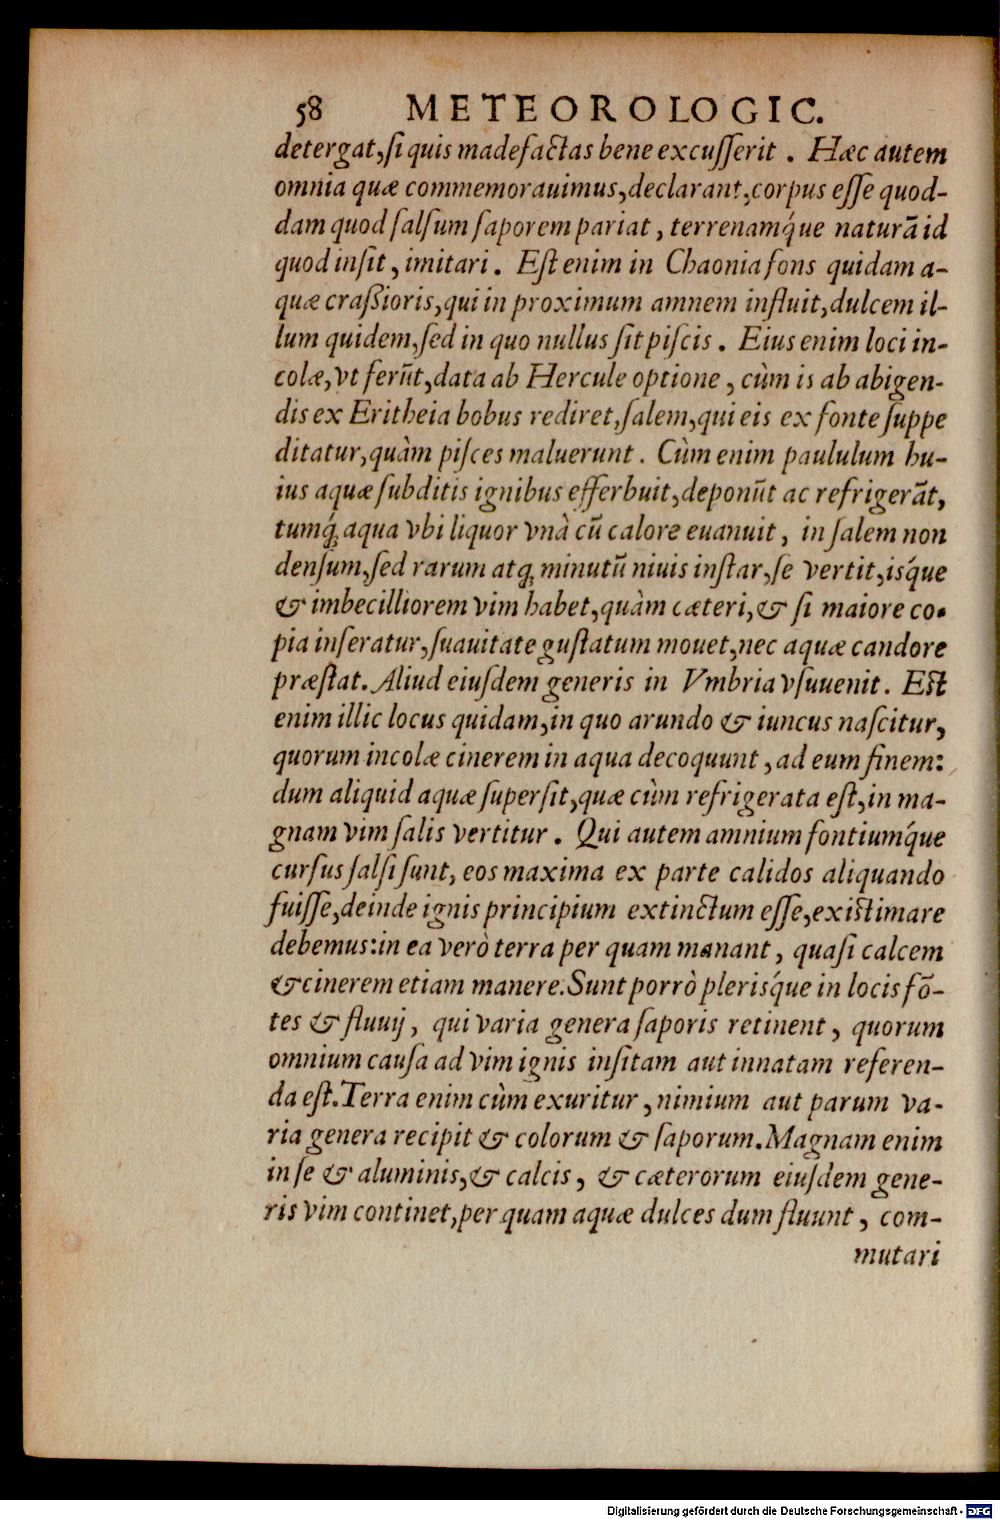 58 METEOROLOGIC.
detergat,ſi quis madefactas bene excuſſerit . Hæc autem
omnia quæ commemorauimus,declarant,corpus eſſe quod-
dam quod ſalſum ſaporem pariat , terrenamq́ue naturã id
quod inſit , imitari . Eſt enim in Chaonia fons quidam a-
quæ craßioris,qui in proximum amnem influit,dulcem il-
lum quidem,ſed in quo nullus ſit piſcis . Eius enim loci in-
colæ,vt ferũt,data ab Hercule optione , cùm is ab abigen-
dis ex Eritheia bobus rediret,ſalem,qui eis ex fonte ſuppe
ditatur,quàm piſces maluerunt . Cùm enim paululum hu-
ius aquæ ſubditis ignibus efferbuit,deponũt ac refrigerãt,
tumq́; aqua vbi liquor vnà cũ calore euanuit , in ſalem non
denſum,ſed rarum atq; minutũ niuis inſtar,ſe vertit,isq́ue
& imbecilliorem vim habet,quàm cæteri,& ſi maiore co-
pia inſeratur,ſuauitate guſtatum mouet,nec aquæ candore
præſtat. Aliud eiuſdem generis in Vmbria vſuuenit . Eſt
enim illic locus quidam,in quo arundo & iuncus naſcitur,
quorum incolæ cinerem in aqua decoquunt , ad eum finem:
dum aliquid aquæ ſuperſit,quæ cùm refrigerata eſt,in ma-
gnam vim ſalis vertitur . Qui autem amnium fontiumq́ue
curſus ſalſi ſunt, eos maxima ex parte calidos aliquando
fuiſſe,deinde ignis principium extinctum eſſe,exiſtimare
debemus:in ea verò terra per quam manant , quaſi calcem
& cinerem etiam manere.Sunt porrò plerisq́ue in locis fõ-
tes & fluuij , qui varia genera ſaporis retinent , quorum
omnium cauſa ad vim ignis inſitam aut innatam referen-
da eſt.Terra enim cùm exuritur , nimium aut parum va-
ria genera recipit & colorum & ſaporum.Magnam enim
in ſe & aluminis,& calcis , & cæterorum eiuſdem gene-
ris vim continet,per quam aquæ dulces dum fluunt , com-
mutari
Digitalisierung gefördert durch die Deutsche Forschungsgemeinschaft - DFG